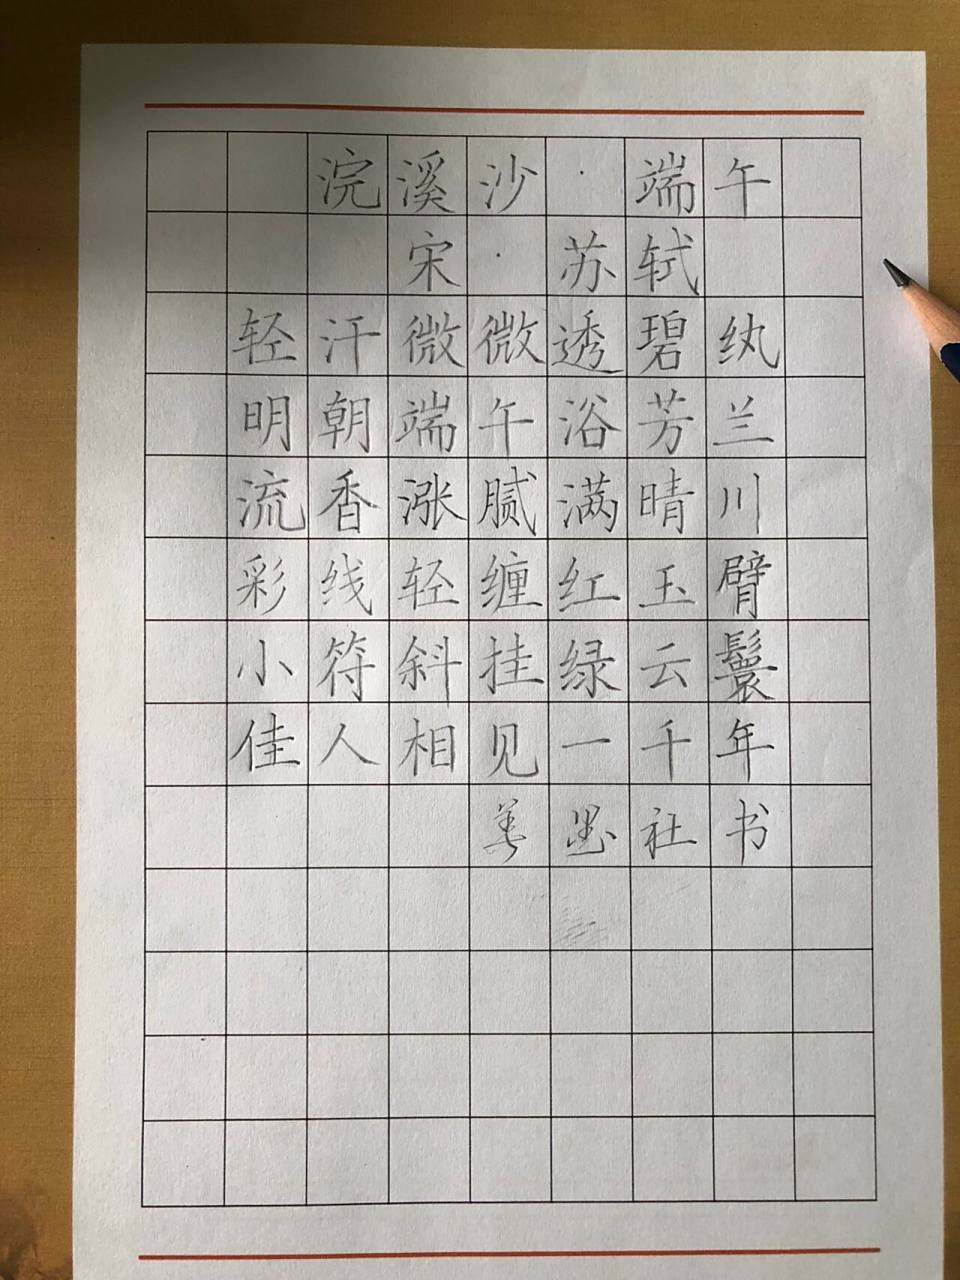 浣溪沙·端午
宋·苏轼
轻汗微微透碧纨
明朝端午浴芳兰
流香涨腻满晴川
彩线轻缠红玉臂
小符斜挂绿云鬟
佳人相见一千年
善墨社书